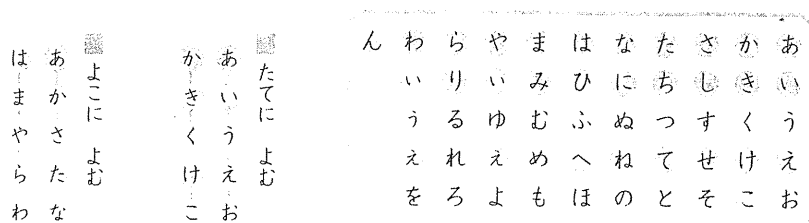 あいうえお
かきくけこ
さしすせそ
たちつてと
なにぬねの
はひふへほ
まみむめも
やいゆえよ
らりるれろ
わいうえを
ん
たてに よむ
あ-い-う-え-お
か-き-く-け-こ
よこに よむ
あ-か-さ-た-な
は-ま-や-ら-わ